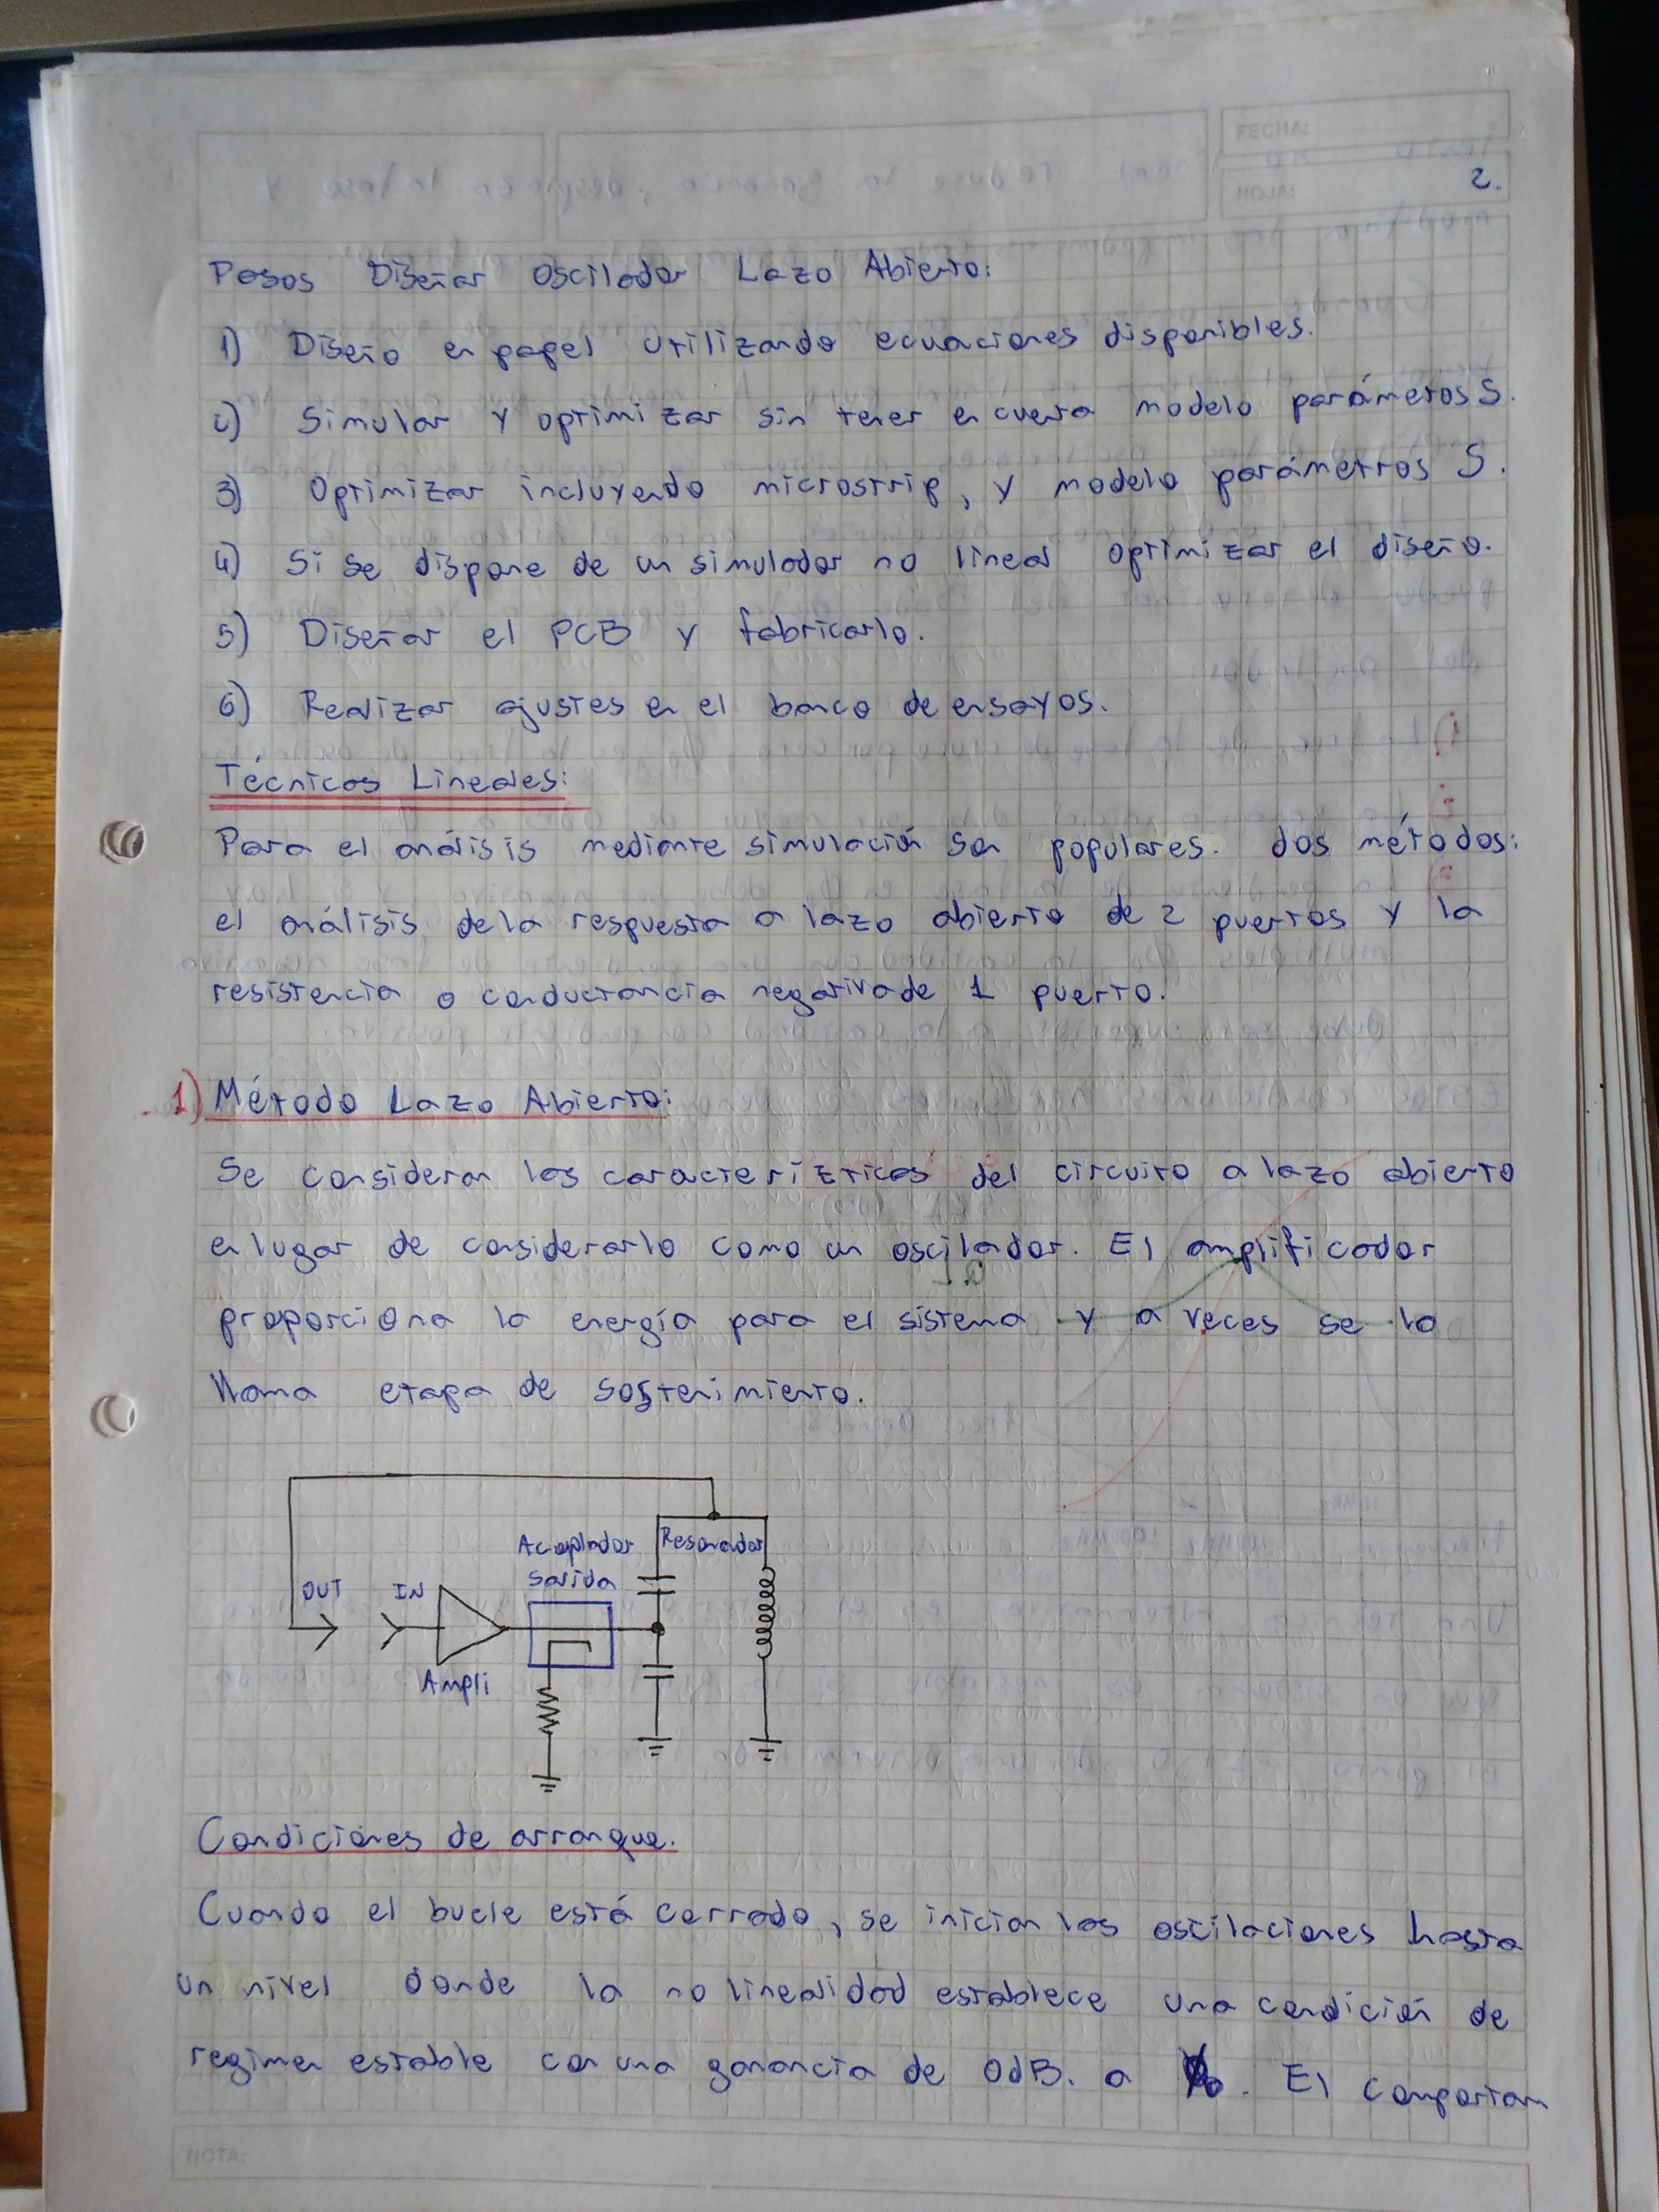 FECHA:
HOJA:
2.
Pasos Diseñar Oscilador Lazo Abierto:
1) Diseño en papel utilizando ecuaciones disponibles.
2) Simular y optimizar sin tener en cuenta modelo parámetros S.
3) Optimizar incluyendo microstrip, y modelo parámetros S.
4) Si se dispone de un simulador no lineal optimizar el diseño.
5) Diseñar el PCB y fabricarlo.
6) Realizar ajustes en el banco de ensayos.
Técnicas Lineales:
Para el análisis mediante simulación son populares dos métodos:
el análisis de la respuesta a lazo abierto de 2 puertos y la
resistencia o conductancia negativa de 1 puerto.
1) Método Lazo Abierto:
Se consideran las caracterízticas del circuito a lazo abierto
en lugar de considerarlo como un oscilador. El amplificador
proporciona la energía para el sistema y a veces se lo
llama etapa de sostenimiento.
Acoplador
salida
Resonador
OUT
IN
Ampli
Condiciones de arranque.
Cuando el bucle está cerrado, se inician las oscilaciones hasta
un nivel donde la no linealidad establece una condición de
regimen estable con una ganancia de 0dB. a . El comportam
NOTA: